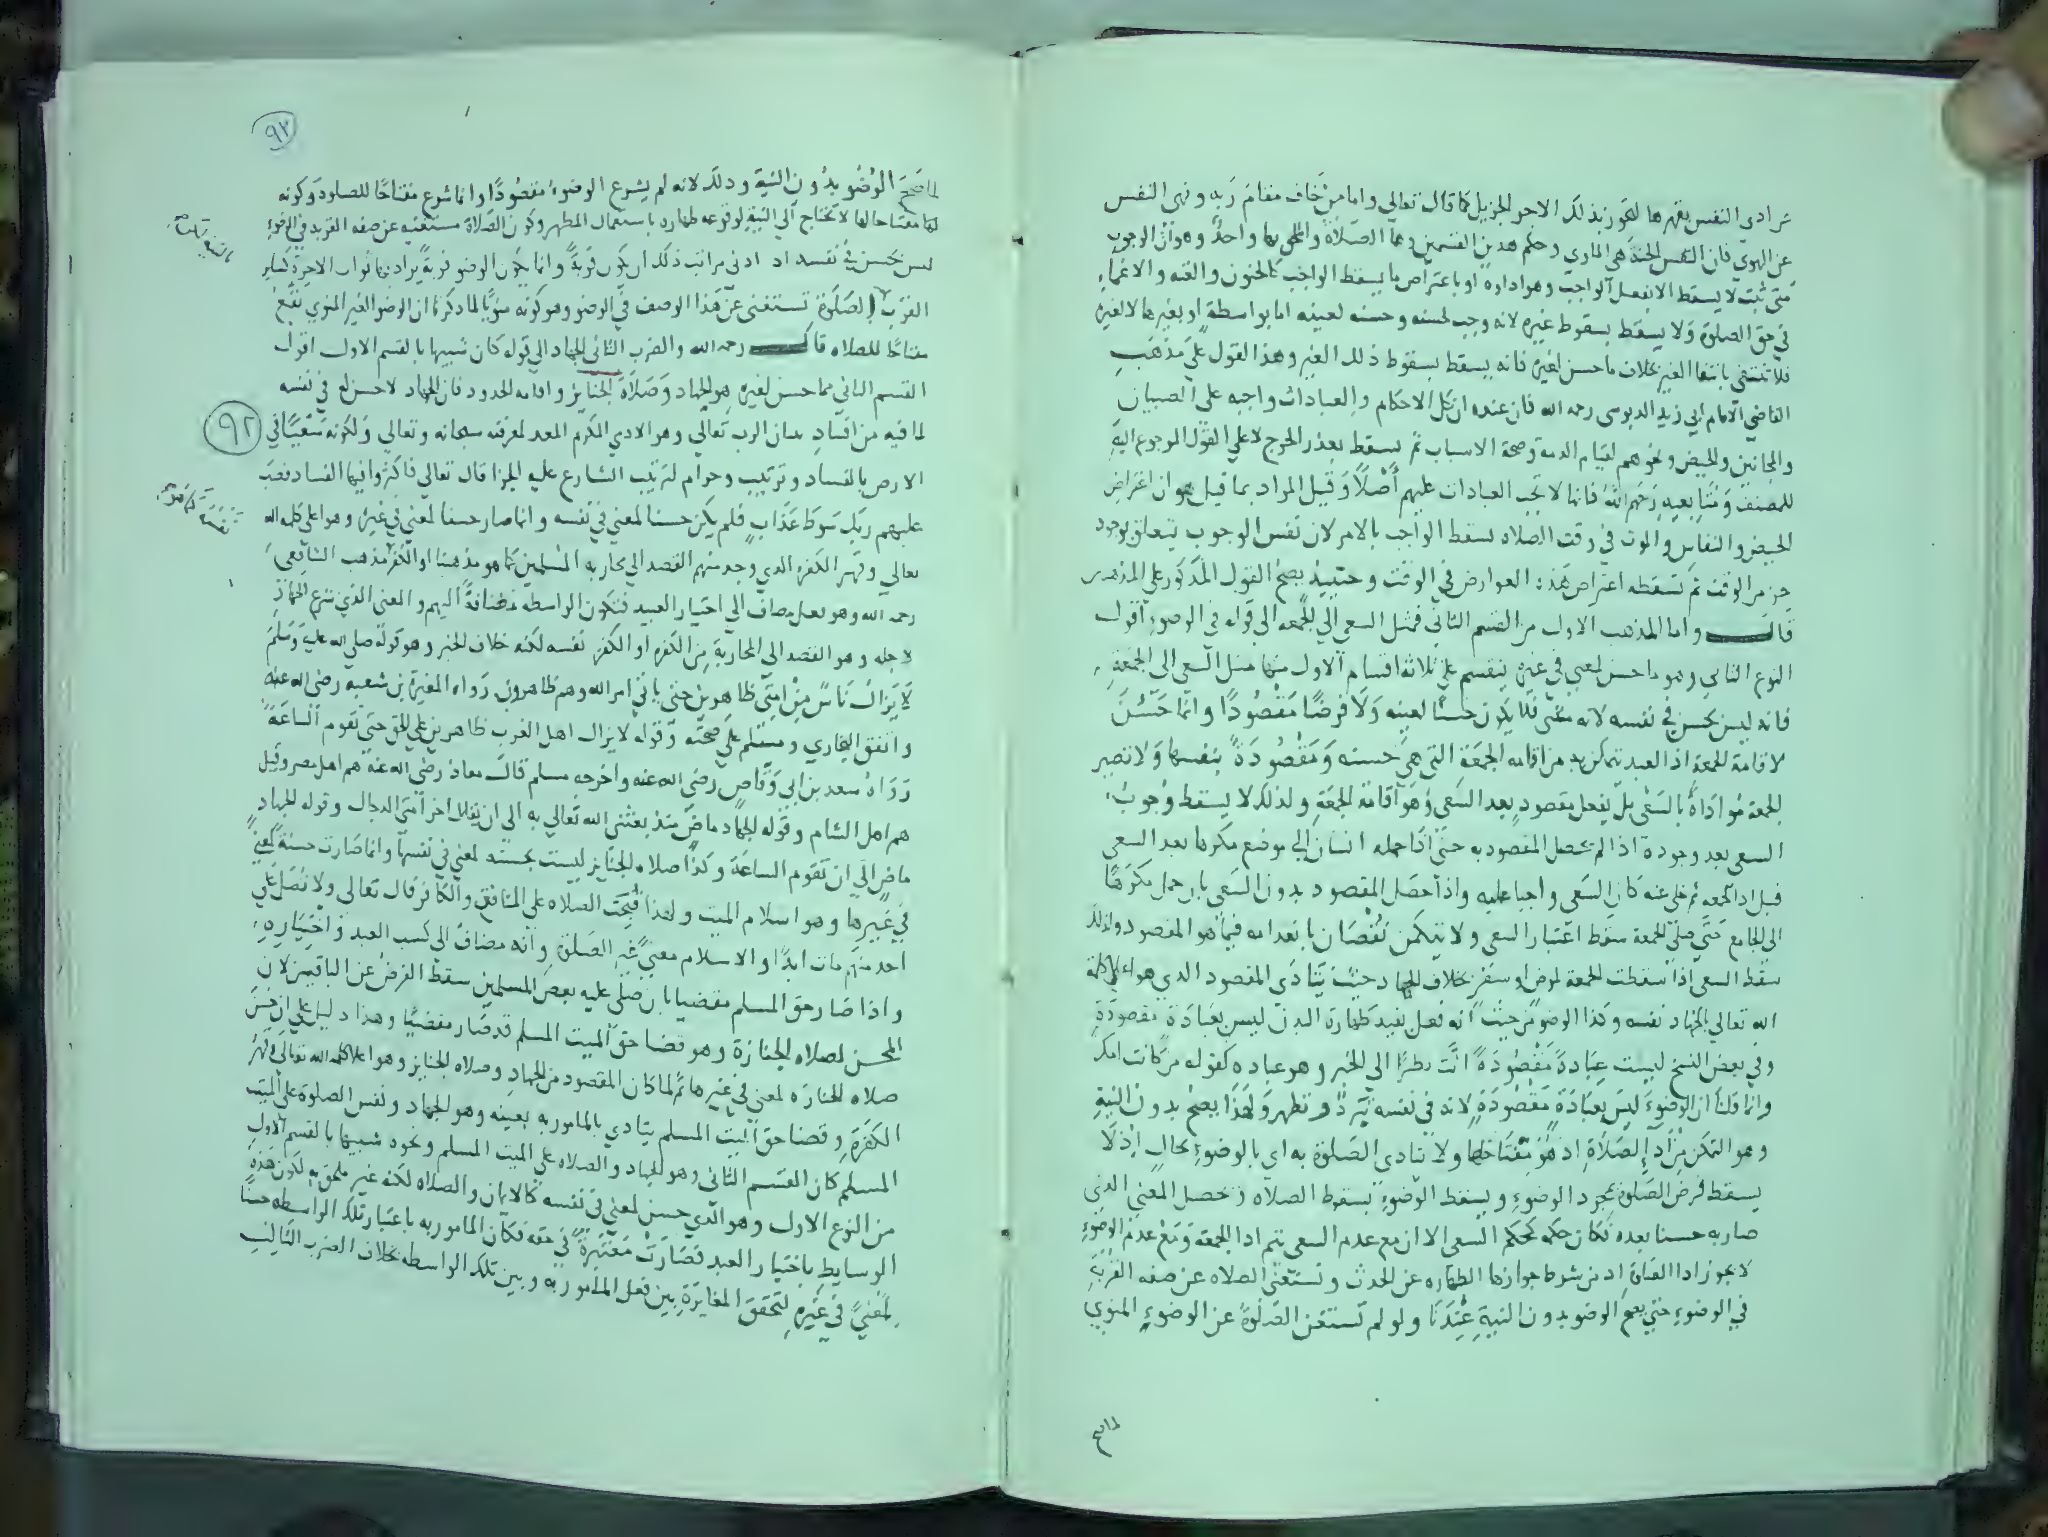 مرادي النفس بقهرها لتفوز بذلك الاجر الجزيل كما قال تعالي واما من خاف مقام ربه ونهى النفس
عن الهوي فان الجنة هي الماوي وحكم هذين القسمين وهما الصلاة والملحق بها واحد وهو ان الوجوب
متى ثبت لا يسقط الا بفعل الواجب وهو اداوه او باعتراض ما يسقط الواجب كالجنون والعته والاغماء
في حق الصلوة ولا يسقط بسقوط غيره لانه وجب لحسنه وحسنه لعينه اما بواسطة او بغيرها لا لغيره
فلا تنتفي بانتفا الغير بخلاف ما حسن لغيره فانه يسقط بسقوط ذلك الغير وهذا القول على مذهب
القاضي الامام ابي زيد الدبوسي رحمه الله فان عنده ان كل الاحكام والعبادات واجبه على الصبيان
والمجانين والحيض ونحوهم لقيام الذمة وصحة الاسباب ثم يسقط بعذر الحرج لا على القول المرجوع اليه
للمصنف ومتابعيه رحمهم الله فانها لا تجب العبادات عليهم أصلا وقيل المراد بما قيل هو ان اعتراض
الحيض والنفاس والموت في وقت الصلاه يسقط الواجب بالامر لان نفس الوجوب يتعلق بوجود
جز من الوقت ثم تسقطه اعتراض هذه العوارض في الوقت وحينيذ يصح القول المذكور على المذهبين
قال واما المذهب الاول من القسم الثاني فمثل السعي الي الجمعه الى قوله في الوضوء أقول
النوع الثاني وهو ما حسن لمعنى في غيره ينقسم على ثلاثه اقسام الاول منها مثل السعي الى الجمعة
فانه ليس بحسن في نفسه لانه مشي فلا يكون حسنا لعينه ولا فرضا مقصودا وانما حسن
لاقامة الجمعة اذ العبد يتمكن به من اقامه الجمعة التي هي حسنه ومقصودة بنفسها ولا تصير
الجمعة مؤداة بالسعي بل بفعل مقصود بعد السعي وهو اقامة الجمعة ولذلك لا يسقط وجوب
السعي بعد وجوده اذا لم يحصل المقصود به حتى اذا حمله انسان إلى موضع مكرها بعد السعي
قبل اداء الجمعه ثم خلى عنه كان السعي واجبا عليه واذا حصل المقصود بدون السعي بان حمل مكرها
الى الجامع حتى صلى الجمعة سقط اعتبار السعي ولا يتمكن نقصان بانعدامه فيما هو المقصود ولذلك
سقط السعي اذا سقطت الجمعة لمرض او سفر بخلاف الجهاد حيث يتادى المقصود الذي هو اعلا كلمة
الله تعالي بالجهاد نفسه وكذا الوضو من حيث انه فعل يفيد طهارة البدن ليس بعبادة مقصودة
وفي بعض النسخ ليست عبادة مقصودة انث نظرا الى الخبر وهو عباده كقوله من كانت امك
وانما قلنا ان الوضوء ليس بعبادة مقصودة لانه في نفسه تبرد وتطهر ولهذا يصح بدون النية
وهو التمكن من اداء الصلاة اذ هو مفتاحها ولا تتادى الصلوة به اي بالوضوء بحال إذ لا
يسقط فرض الصلوة بمجرد الوضوء ويسقط الوضوء بسقوط الصلاه وتحصل المعنى الذي
صار به حسنا بعده فكان حكمه كحكم السعي الا ان مع عدم السعي يتم ادا الجمعة ومع عدم الوضوء
لا يجوز ادا الصلوة اذ من شرط جوازها الطهاره عن الحدث وتستغني الصلاه عن صفه القربة
في الوضوء حتى يصح الوضو بدون النية عندنا ولو لم تستغن الصلوة عن الوضوء المنوي
لما صح
٩٣
لما صح الوضو بدون النية وذلك لانه لم يشرع الوضوء مقصودا وانما شرع مفتاحا للصلوة وكونه
لها مفتاحا لها لا تحتاج الي النية لوقوعه طهاره باستعمال المطهر وكون الصلاة مستغنيه عن صفه القربه في الوضوء
ليس بحسن في نفسه اذ ادنى مراتب ذلك ان يكون قربة وانما يكون الوضو قربة يراد بها ثواب الاخرة كساير
القرب بالنية
القرب والصلوة تستغني عن هذا الوصف في الوضو وهو كونه منويا لما ذكرنا ان الوضو الغير المنوي يقع
مفتاحا للصلاه قال رحمه الله والضرب الثاني الجهاد الي قوله كان شبيها بالقسم الاول اقول
القسم الثاني مما حسن لغيره هو الجهاد وصلاة الجنايز واقامه الحدود فان الجهاد لا حسن له في نفسه
٩٢
لما فيه من افساد بنيان الرب تعالي وهو الادمي المكرم المعد لمعرفته سبحانه وتعالي ولكونه سعيا في
الارض بالفساد وترتيب وحرام لترتيب الشارع عليه الجزا قال تعالي فاكثروا فيها الفساد فصب
عليهم ربك سوط عذاب فلم يكن حسنا لمعني في نفسه وانما صار حسنا لمعني في غيره وهو اعلى كلمه الله
تعالي وقهر الكفره الذي وجد منهم القصد الي محاربه المسلمين كما هو مذهبنا او الكفر كما هو مذهب الشافعي
رحمه الله وهو فعل مضاف الي اختيار العبيد فتكون الواسطة مضافة اليهم والمعنى الذي شرع الجهاد
لاجله وهو القصد الى المحاربة من الكفره او الكفر نفسه لكنه خلاف الخبر وهو قوله صلى الله عليه وسلم
لا يزال ناس من امتي ظاهرين حتى ياتي امر الله وهم ظاهرون رواه المغيرة بن شعبه رضى الله عنه
واتفق البخاري ومسلم على صحته وقوله لا يزال اهل الغرب ظاهرين على الحق حتى تقوم الساعة
رواه سعد بن ابي وقاص رضي الله عنه واخرجه مسلم قال معاذ رضى الله عنه هم اهل مصر وقيل
هم اهل الشام وقوله الجهاد ماض منذ بعثني الله تعالي به الى ان يقاتل اخر امتي الدجال وقوله الجهاد
ماض الى ان تقوم الساعة وكذا صلاه الجنايز ليست بحسنه لمعني في نفسها وانما صارت حسنة لمعنى
في غيرها وهو اسلام الميت ولهذا قبحت الصلاه على المنافق والكافر قال تعالى ولا تصل على
احد منهم مات ابدا والاسلام معني غير الصلوة وانه مضاف الى كسب العبد واختياره
واذا صار حق المسلم مقضيا بان صلى عليه بعض المسلمين سقط الفرض عن الباقين لان
المحسن لصلاه الجنازة وهو قضا حق الميت المسلم قد صار مقضيا وهذا دليل على ان حسن
صلاه الجنازه لمعني في غيرها ثم لما كان المقصود من الجهاد وصلاه الجنايز وهو اعلا كلمه الله تعالي وقهر
الكفرة وقضا حق الميت المسلم يتادي بالمامور به بعينه وهو الجهاد ونفس الصلوة على الميت
المسلم كان القسم الثاني وهو الجهاد والصلاه على الميت المسلم ونحوه شبيها بالقسم الاول
من النوع الاول وهو الذي حسن لمعني في نفسه كالايمان والصلاه لكنه غير ملحق به لكون هذه
الوسايط باختيار العبد فصارت معتبرة في حقه فكان المامور به باعتبار تلك الواسطه حسنا
لمعني في غيره لتحقق المغايرة بين فعل المامور به وبين تلك الواسطه بخلاف الضرب الثالث